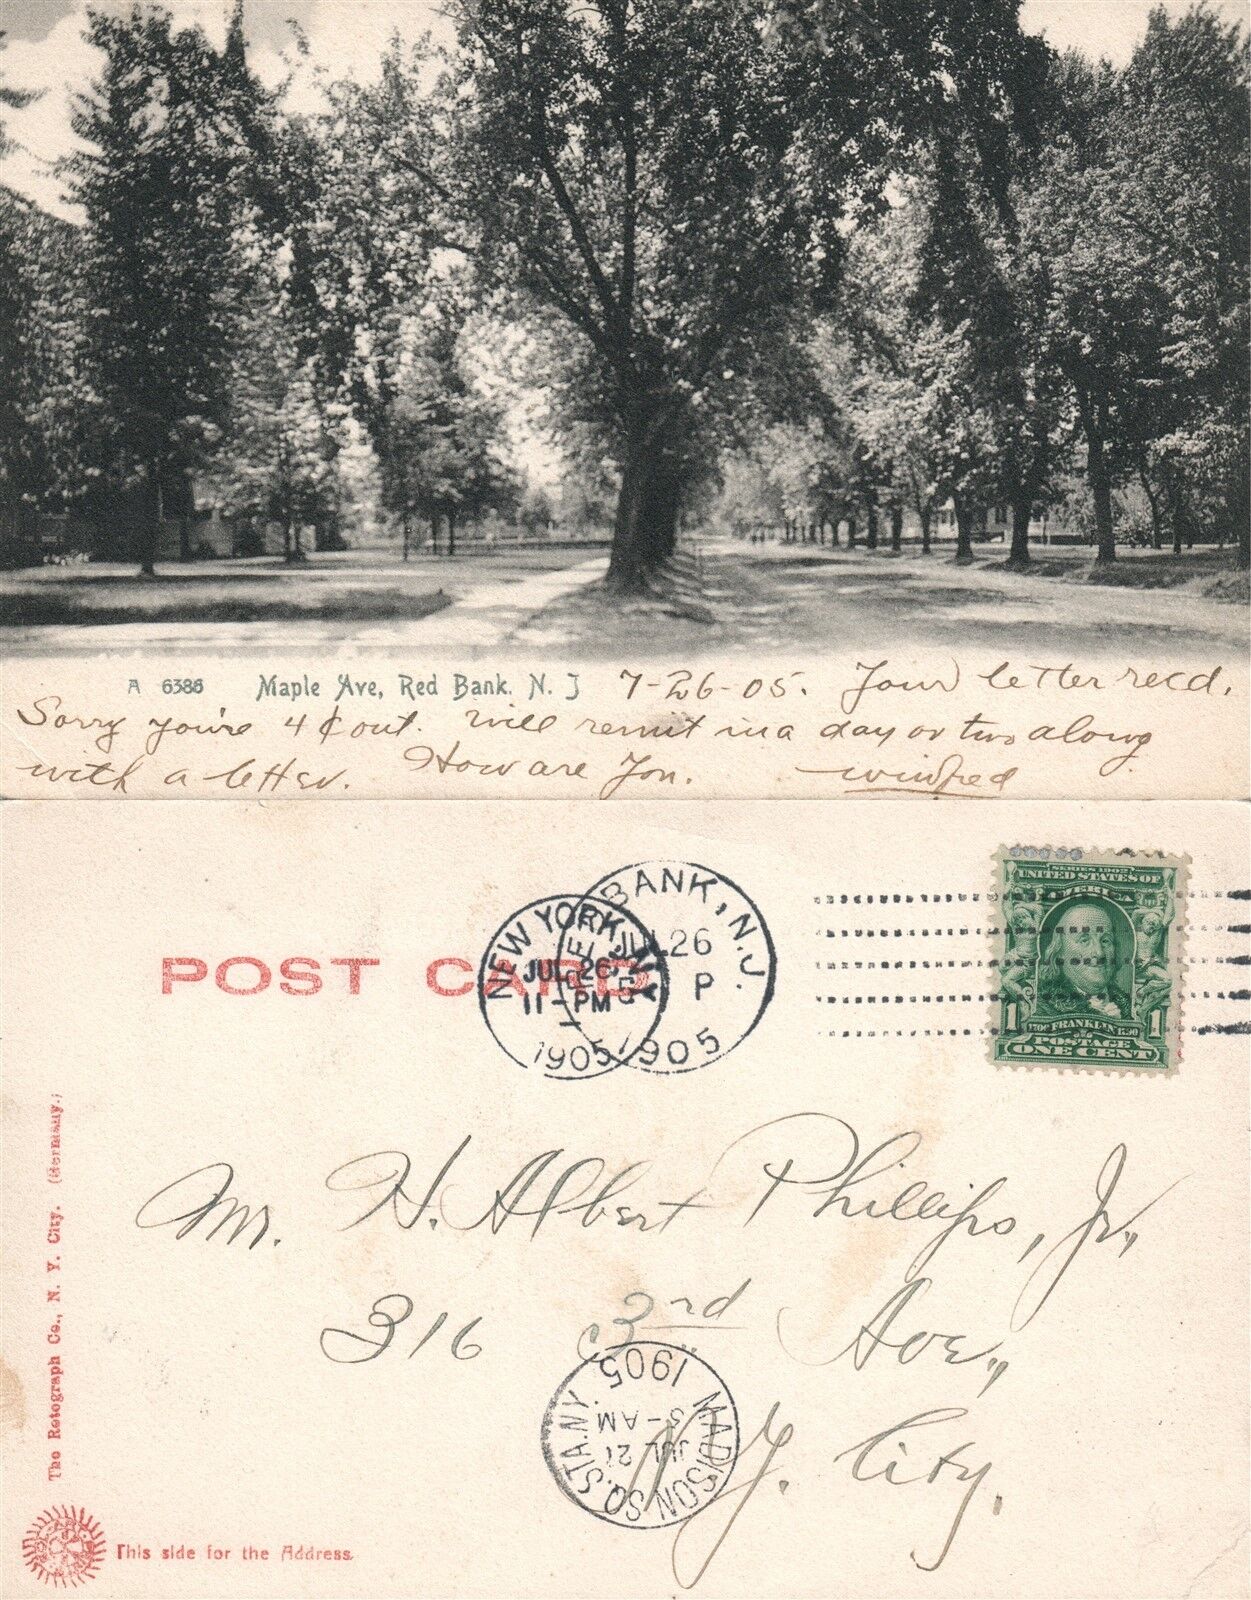 A 6386 Maple Ave, Red Bank. N. J 7-26-05. Your letter recd.
Sorry you're 4 ¢ out. Will remit in a day or two along
with a letter. How are You. Winfred
POST CARD
NEW YORK, N.Y.
JUL 26
11-PM
1905
RED BANK, N.J.
JUL 26
P
1905
SERIES 1902
UNITED STATES OF
AMERICA
1 1706 FRANKLIN 1790 1
POSTAGE
ONE CENT
Mr. H. Albert Phillips, Jr.,
316 3rd Ave.,
N.Y. City.
MADISON SQ. STA. N.Y.
5-AM
JUL 27
1905
The Rotograph Co., N. Y. City. (Germany.)
This side for the Address.